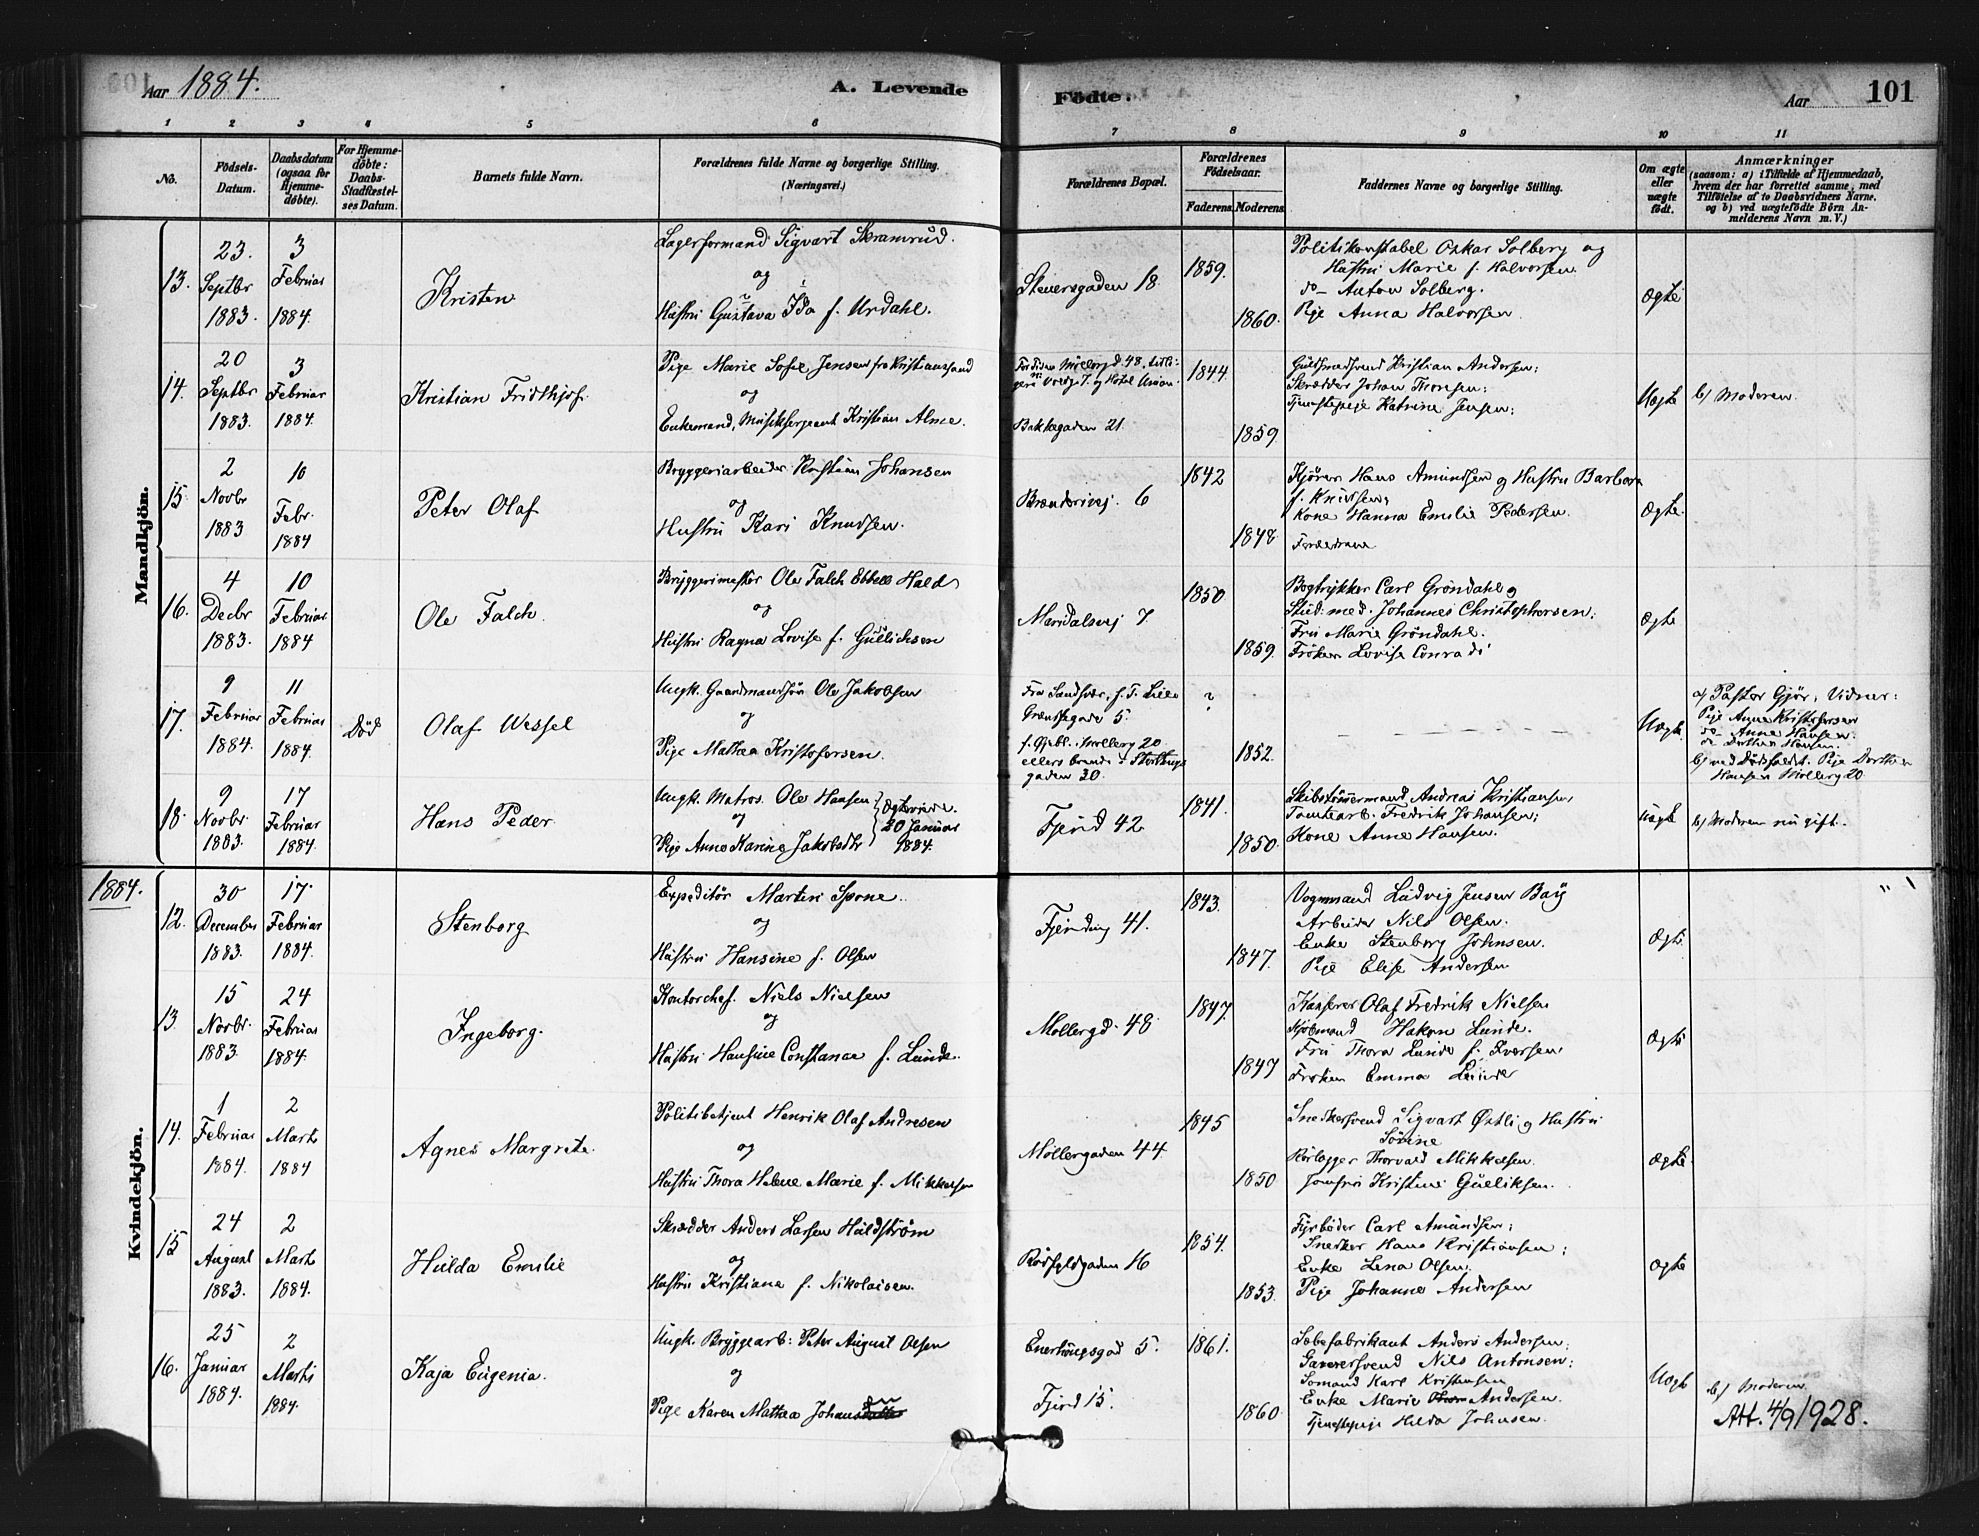 Aar 1884.
A. Levende
Födte.
Aar
101
1
2
3
4
5
6
7
8
9
10
11
No.
Födsels-
Datum.
Daabsdatum
(ogsaa for
Hjemme-
döbte).
For Hjemme-
döbte:
Daabs-
Stadfæstel-
ses Datum.
Barnets fulde Navn.
Forældrenes fulde Navne og borgerlige Stilling.
(Næringsvei.)
Forældrenes Bopæl.
Forældrenes
Födselsaar.
Faderens. Moderens.
Faddernes Navne og borgerlige Stilling.
Om ægte
eller
uægte
födt.
Anmærkninger
(saasom: a) i Tilfælde af Hjemmedaab,
hvem der har forrettet samme, med
Tilföielse af to Daabsvidners Navne.
og b) ved uægtefödte Börn An-
melderens Navn m. V.)
Mandkjön.
13.
23.
Septbr
1883.
3
Februar
1884.
Kristen
Lagerformand Sigvart Skramrud.
og
Hustru Gustava Ida f. Urdahl.
Steuersgaden 18
1859.
1860.
Politikonstabel Oskar Solberg og
Hustru Marie f. Halvorsen.
do Anton Solberg.
Pige Anna Halvorsen.
Ægte
14.
20
Septbr
1883.
3
Februar
1884.
Kristian Fridthjof.
Pige Marie Sofie Jensen fra Kristianssand
og
Enkemand, Musiksergeant Kristian Alme.
Bakkegaden 21.
1844.
1859.
Guldsmedsvend Kristian Andersen;
Skrædder Johan Thomsen;
Tjenestepige Katrine Jensen;
Uægte
b) Moderen.
15.
2
Novbr
1883
10
Febr.
1884
Peter Olaf
Bryggeriarbeider Kristian Johansen
og
Hustru Kari Knudsen.
Brænderivej. 6
1842
1848
Kjører Hans Amundsen og Hustru Barbara
f. Knudsen;
Kone Hanna Emilie Pedersen.
Forældrene
Ægte.
16.
4
Decbr
1883.
10
Februar
1884
Ole Falch.
Bryggerimester Ole Falch Ebbell Hald
og
Hustru Ragna Lovise f. Gullichsen
Maridalsvej 7
1850
1859
Bogtrykker Carl Gröndahl og
Stud. med. Johannes Christophersen;
Fru Marie Gröndahl.
Fröken Lovise Conradi
Ægte
17.
9
Februar
1884.
11
Februar
1884.
Död
Olaf Wessel
Ungk. Gaardmandssön Ole Jakobsen
og
Pige Mathea Kristofersen.
Fra Sandsvær,
Grændsegade 5.
Mollerg 20
gaden 30.
?
1852.
Uægte.
a) Pastor Gjör, Vidner:
Pige Anne Kristofersen
do Anne Hansen.
do Dorthea Hansen.
b) ved Dödsfaldet. Pige Dorthea
Hansen Mollerg 20
18.
9
Novbr.
1883
17
Februar
1884.
Hans Peder.
Ungk. Matros. Ole Hansen
og
Pige Anne Karine Jakobsdtr
Ægteviede.
20 Januar
1884.
Fjerd 42
1841.
1850.
Skibstömmermand Andreas Kristiansen,
Tomtearb. Fredrik Johansen;
Kone Anne Hansen.
Uægte
b) Moderen nu gift.
1884.
Kvindekjön.
12.
30
December
1883.
17.
Februar
1884.
Stenborg
Expeditör Martin Spone.
og
Hustru Hansine f. Olsen
Fjerding 41.
1843.
1847.
Vognmand Ludvig Jensen Bay
Arbeider Nils Olsen.
Enke Stenborg Johnsen.
Pige Elise Andersen
Ægte.
13
15
Novbr.
1883.
24
Februar
1884.
Ingeborg.
Kontorchef. Niels Nielsen
og
Hustru Hansine Constance f. Lunde.
Mollergd. 48
1847.
1847
Kasserer Olaf Fredrik Nielsen
Kjöbmand Hakon Lunde.
Fru Thora Lunde f. Iversen,
Fröken Emma Lunde
Ægte
14.
1
Februar
1884.
2
Marts
1884
Agnes Margrete.
Politibetjent Henrik Olaf Andresen
og
Hustru Thora Helene Marie f. Mikkelsen
Möllergaden 44
1845
1850
Snedkersvend Sigvart Østli og Hustru
Sörine
Rörlægger Thorvald Mikkelsen.
Jomfru Kristine Gulliksen.
Ægte.
15
24
August
1883.
2
Marts
1884.
Hulda Emilie
Skrædder Anders Larsen Huldström
og
Hustru Kristiana f. Nikolaisen.
Rörfyldgaden 16
1854.
1853.
Fyrböder Carl Amundsen;
Snedker Hans Kristiansen;
Enke Lena Olsen.
Pige Johanne Andersen
Ægte
16.
25
Januar
1884.
2
Marts
1884.
Kaja Eugenia.
Ungk. Bryggearb: Peter August Olsen
og
Pige Karen Mathea Johansdatter
Enerhougsgad 5.
Fjerd 15.
1861.
1860
Sæbefabrikant Anders Andersen;
Garversvend Nils Antonsen;
Sömand Karl Kristensen
Enke Marie Andersen.
Tjenestepige Hilda Johnsen.
Uægte
b) Moderen.
Att. 4/9 1928.